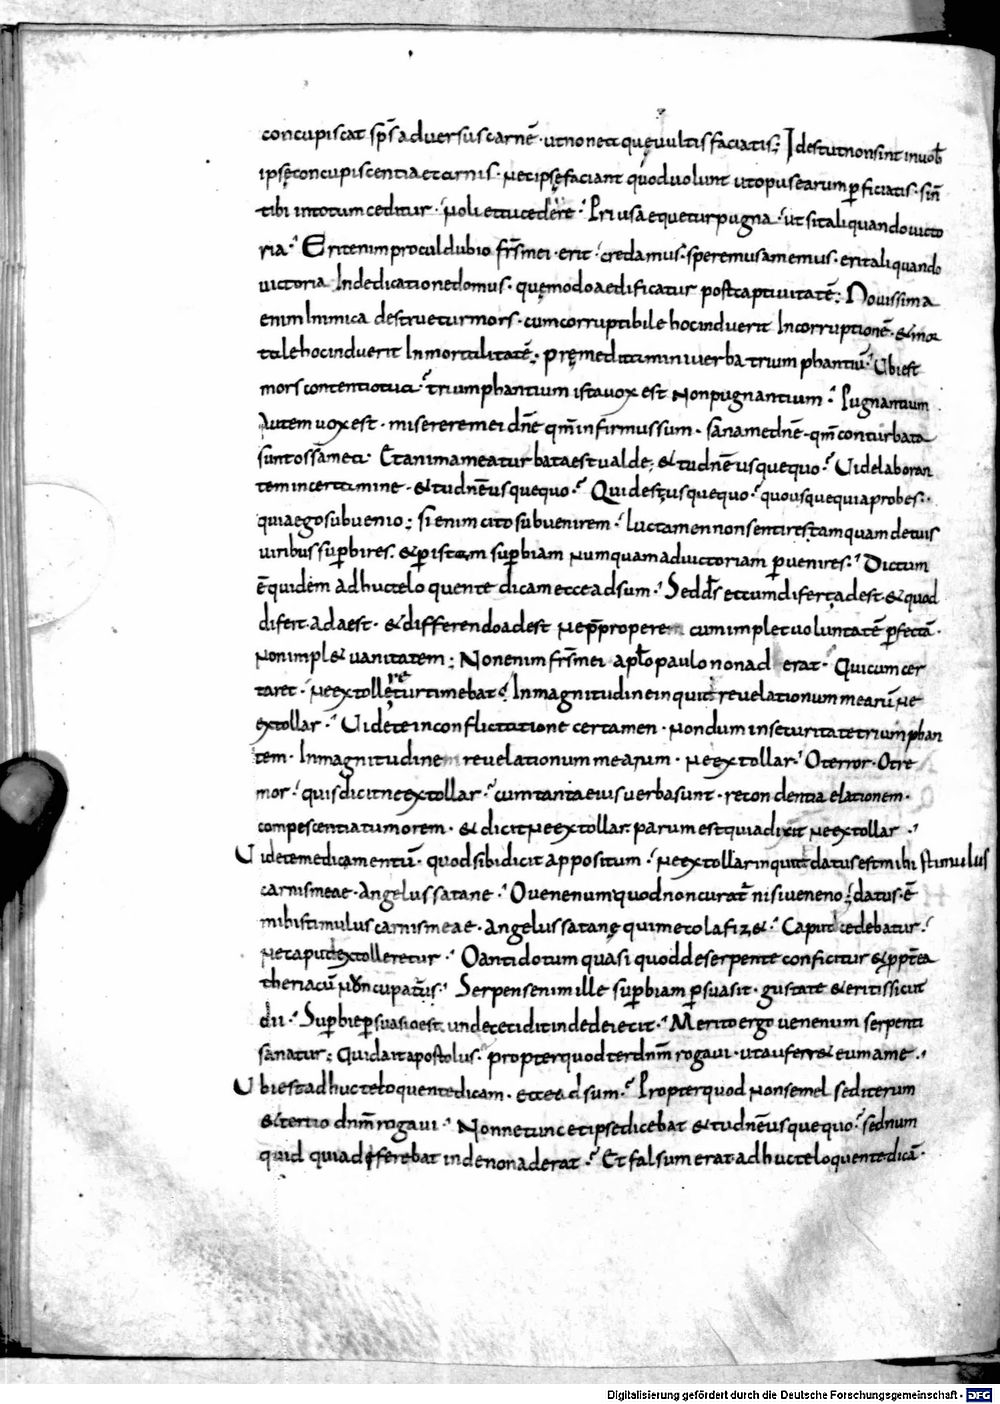 concupiscat sp̄s aduersus carnē · ut non ea quę uultis faciatis; Id est ut non sint in uob̄
ipsę concupiscentiae carnis · Ne et ipsę faciant quod uolunt ut opus earum ꝑficiatis · sin̄
tibi in totum ceditur · Noli et tu cedere · Prius aequetur pugna · ut sit aliquando uicto
ria · Erit enim procul dubio fr̄s mei · erit · credamus · speremus amemus · erit aliquando
uictoria In dedicatione domus · quę modo aedificatur post captiuitatē; Nouissima
enim Inimica destruetur mors · cum corruptibile hoc induerit Incorruptionē · & mor
tale hoc induerit Inmortalitatē; Pręmeditamini uerba triumphantiū · Ubi est
mors contentio tua · triumphantium ista uox est Non pugnantium · Pugnantium
Autem uox est · miserere mei dn̄e qm̄ infirmus sum · sana me dn̄e · qm̄ conturbata
sunt ossa mea · Et anima mea turbata est ualde; & tu dn̄e usquequo · Uide laboran
tem in certamine · & tu dn̄e usquequo · Quid est usquequo · quousque quia probes ·
quia ego subuenio; si enim cito subuenirem · luctamen non sentires tamquam de tuis
uiribus suꝑbires · & ꝑ istam suꝑbiam Numquam ad uictoriam ꝑuenires · Dictum
ē quidem adhuc te loquente dicam ecce adsum · Sed d̄s et cum difert adest & quod
difert adaest · & differendo adest Ne p̄properem cum implet uoluntatē ꝑfectā ·
Non impl& uanitatem; Non enim fr̄s mei apl̄o paulo non aderat · Qui cum cer
taret · Ne extolleretur timebat · In magnitudine inquit reuelationum mearū Ne
extollar · Uidete in conflictatione certamen · Nondum in securitate triumphan
tem · In magnitudinem reuelationum mearum · Ne extollar · O terror · O tre
mor · quis dicit ne extollar · cum tanta eius uerba sunt · retondentia elationem ·
compescentia tumorem · & dicit Ne extollar: parum est quia dixit Ne extollar ·
Uidete medicamentū · quod sibi dicit appositum · Ne extollar inquit datus est mihi stimulus
carnis meae · Angelus satane · O uenenum quod non curat̄ nisi ueneno; datus ē
mihi stimulus carnis meae · Angelus satanę qui me colafiz& · Caput cedebatur ·
Ne caput extolleretur · O antidotum quasi quod de serpente conficitur & ꝓpt̄ea
theriacū Noncupatus · Serpens enim ille suꝑbiam ꝑsuasit · gustate & eritis sicut
dii · Suꝑbiae ꝑsuasio est. unde cecidit inde deiecit · Merito ergo ueneum serpenti
sanatur; Quid ait apostolus · propter quod ter dn̄m rogaui · ut auferr& eum a me ·
Ubi est adhuc te loquente dicam · ecce adsum · Propter quod Non semel sed iterum
& tertio dn̄m rogaui · Nonne tunc et ipse dicebat & tu dn̄e usquequo · sed num
quid quia differebat inde non aderat · Et falsum erat adhuc te loquente dicā ·
Digitalisierung gefördert durch die Deutsche Forschungsgemeinschaft - DFG